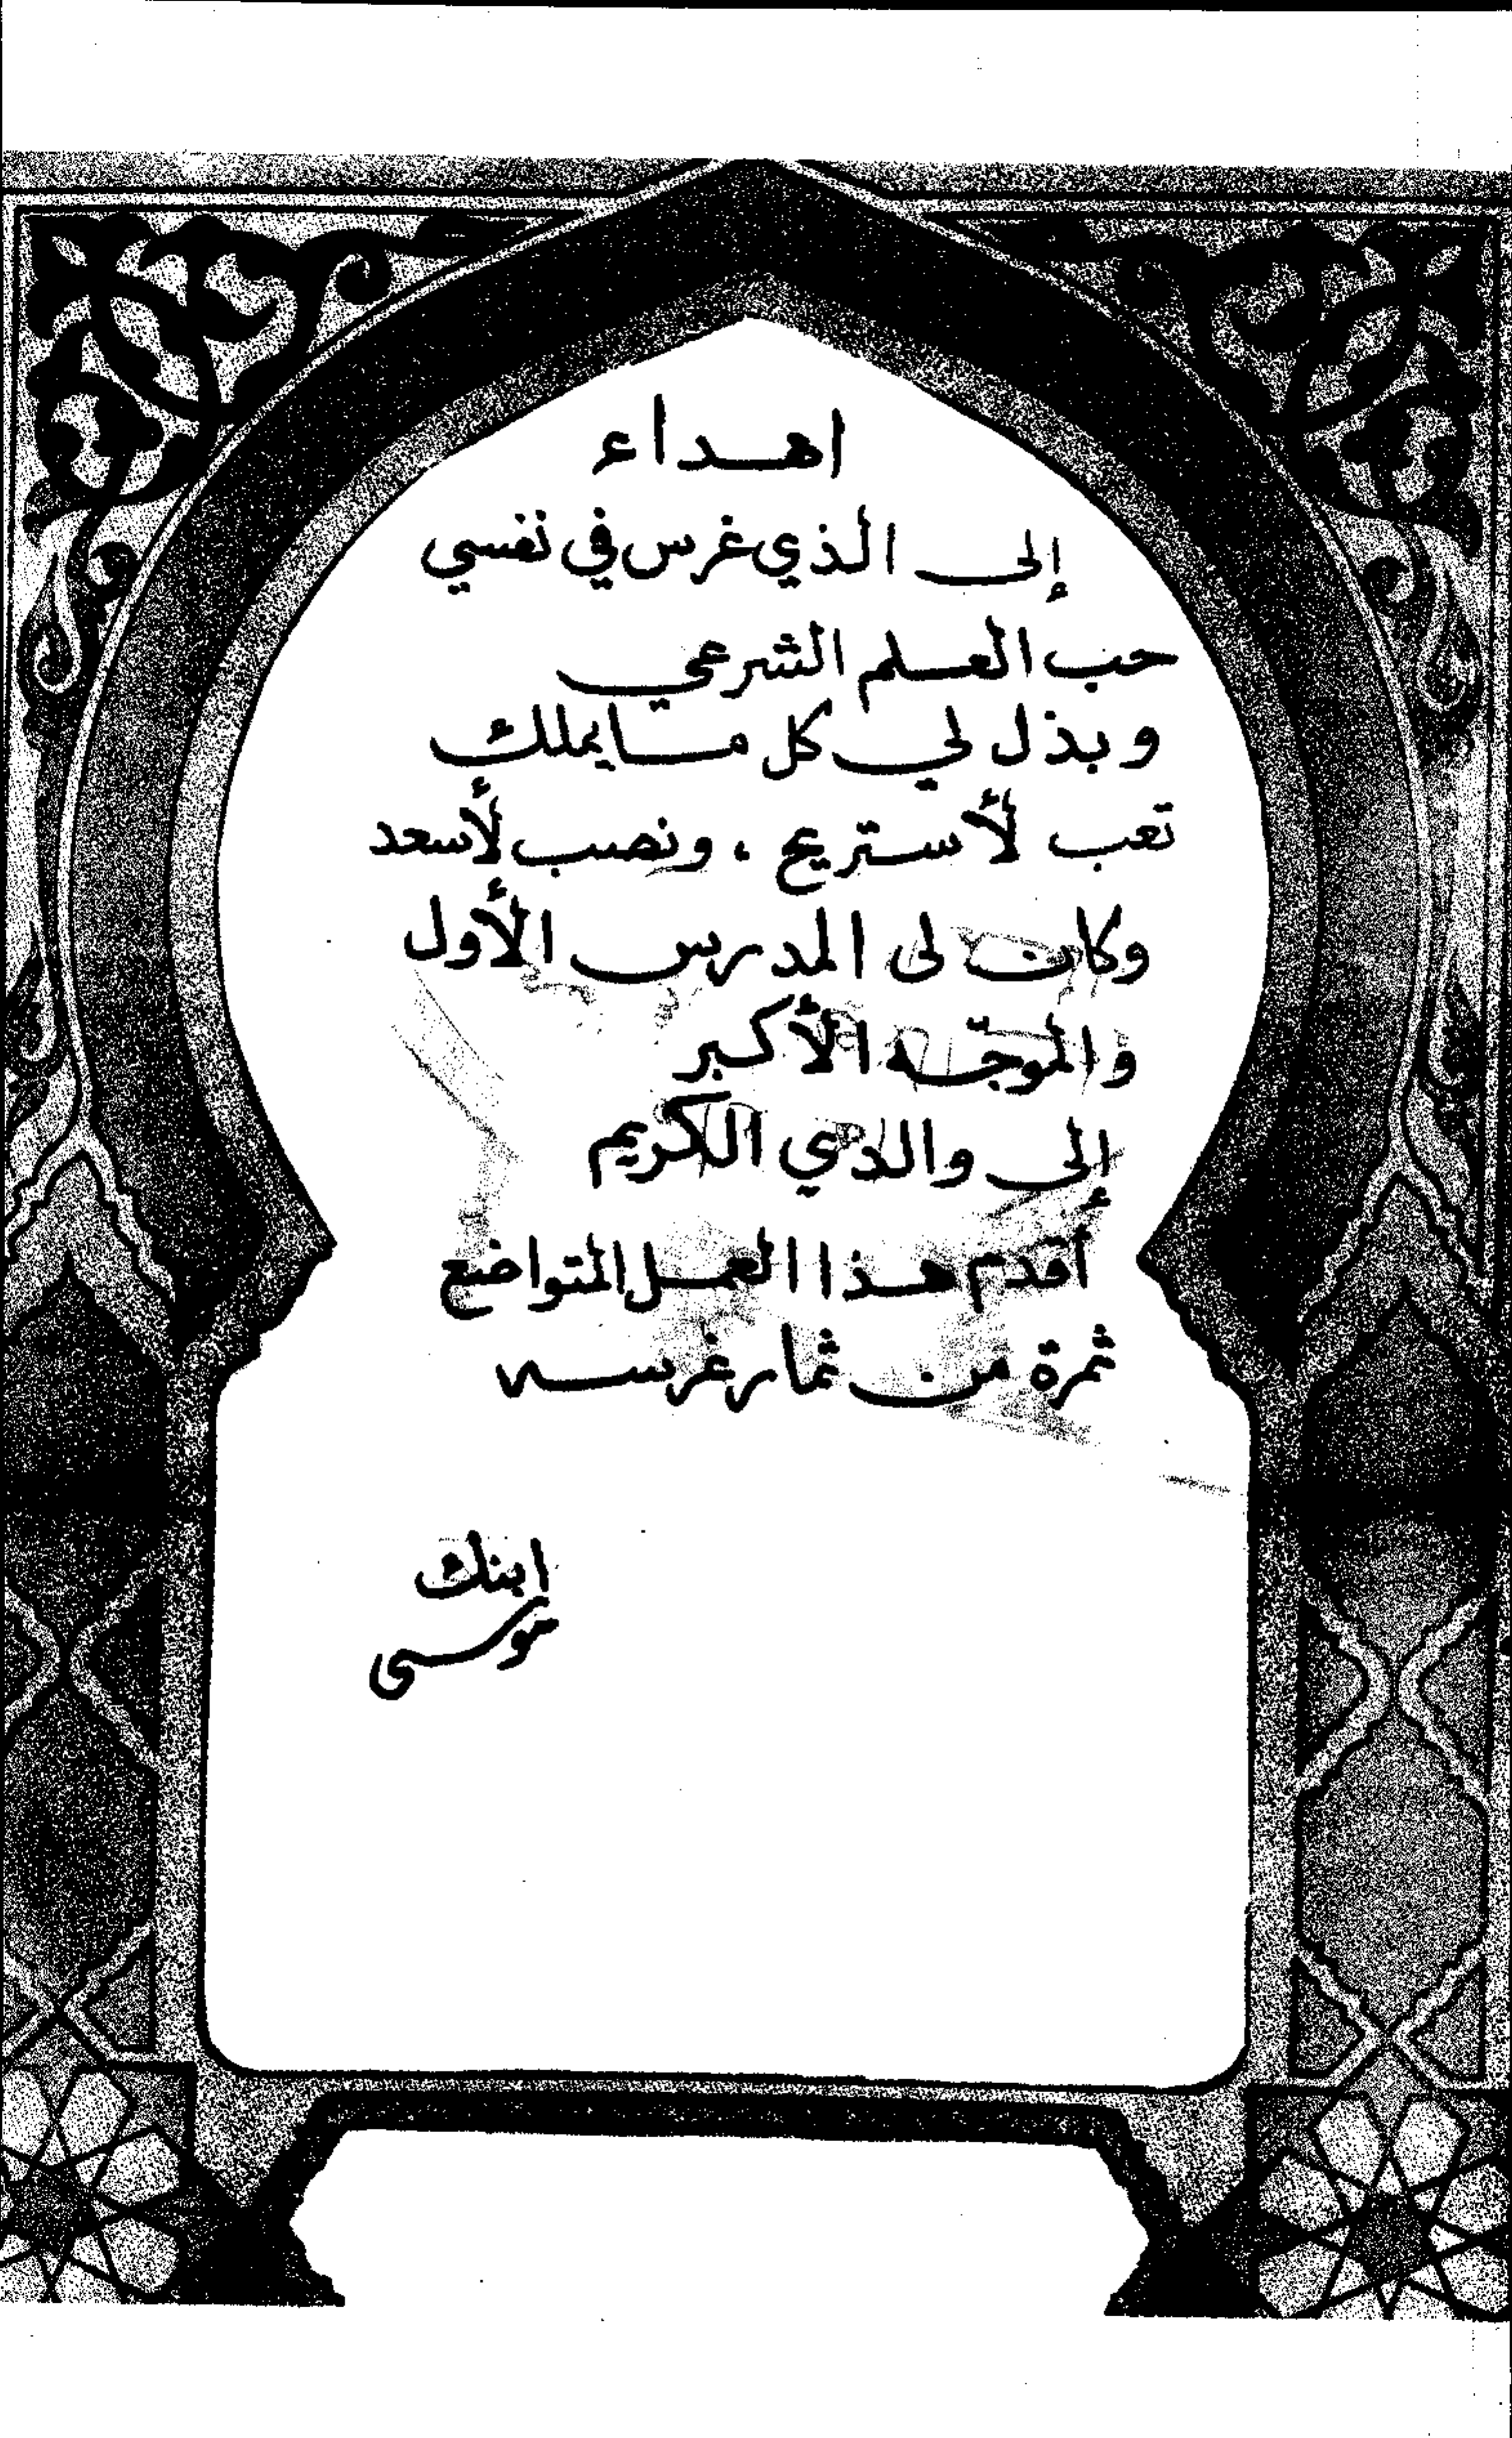 اهداء
إلى الذي غرس في نفسي
حب العلم الشرعي
وبذل لي كل ما يملك
تعب لأستريح ، ونصب لأسعد
وكان لى المدرس الأول
والموجّه الأكبر
إلى والدي الكريم
أقدم هذا العمل المتواضع
ثمرة من ثمار غرسه
ابنك
موسى